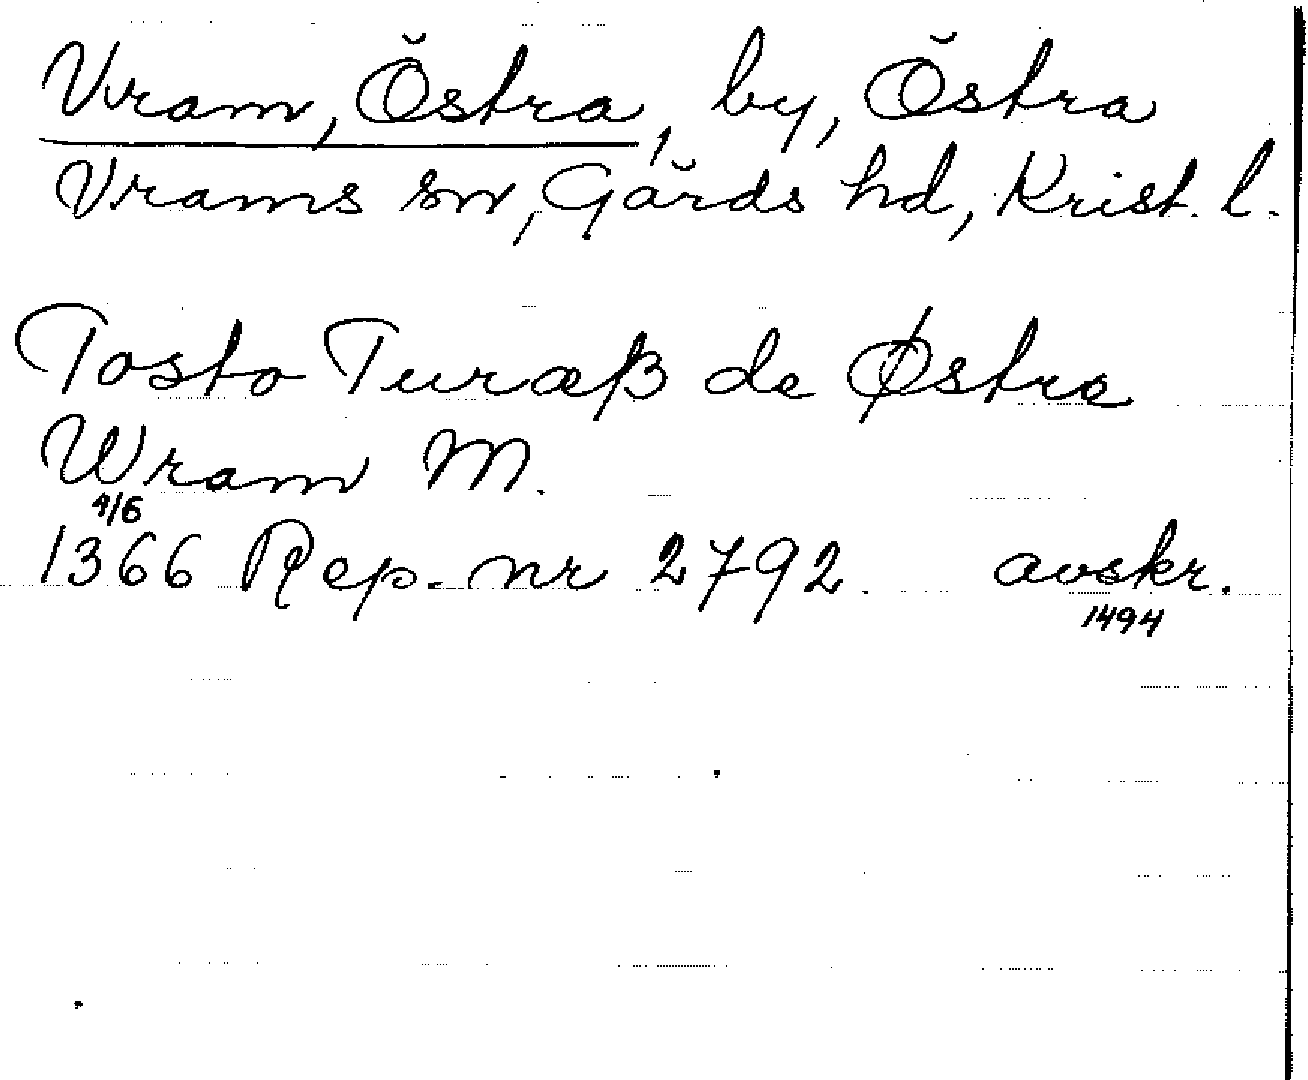 Vram, Östra, by, Östra
Vrams sn, Gärds hd, Krist. l.
Tosto Turæß de Østra
Wram M.
4/6
1366 Rep. nr 2792. avskr.
1494